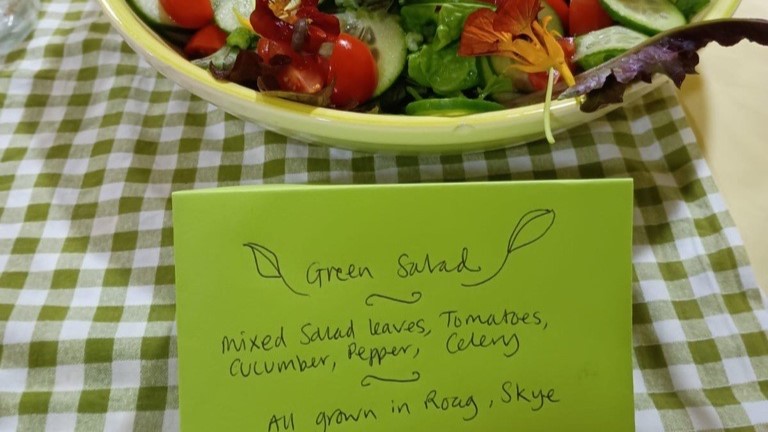 Green Salad
Mixed Salad leaves, Tomatoes,
Cucumber, Pepper, Celery
All grown in Roag, Skye